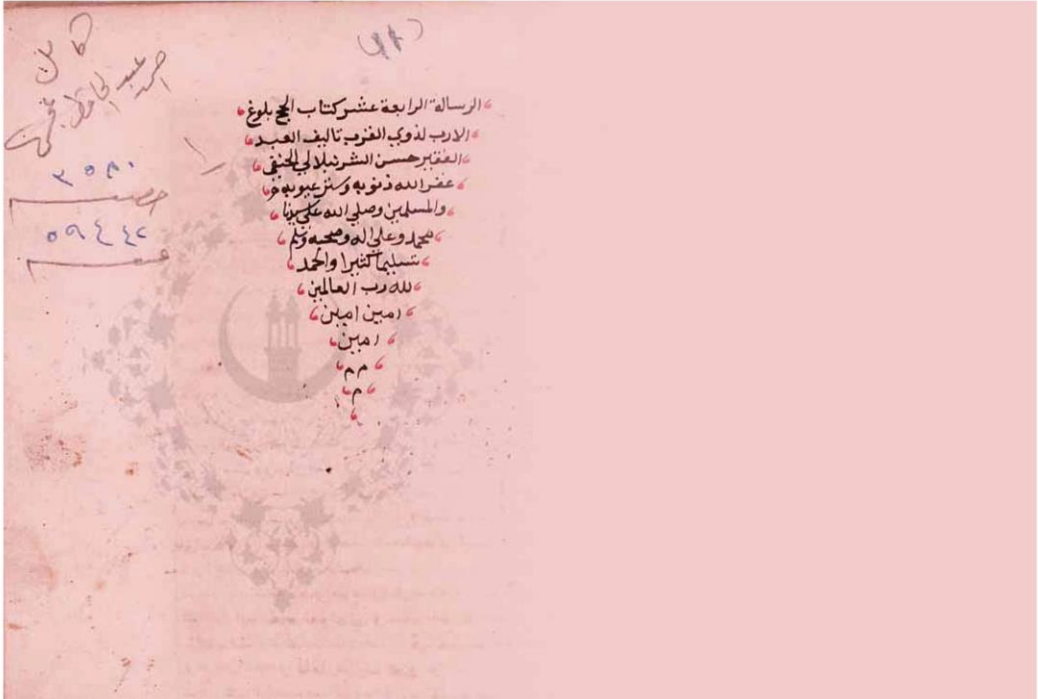 (٩٨)
كامل
احمد عبد
٣٥٨٠
٥٩٤٤٢
الرسالة الرابعة عشر كتاب الحج بلوغ
الارب لذوي القرب تاليف العبد
الفقير حسن الشرنبلالي الحنفي
غفر الله ذنوبه وستر عيوبه
والمسلمين وصلي الله علي سيدنا
محمد وعلي اله وصحبه وسلم
تسليما كثيرا والحمد
لله رب العالمين
امين امين
امين
م م
م